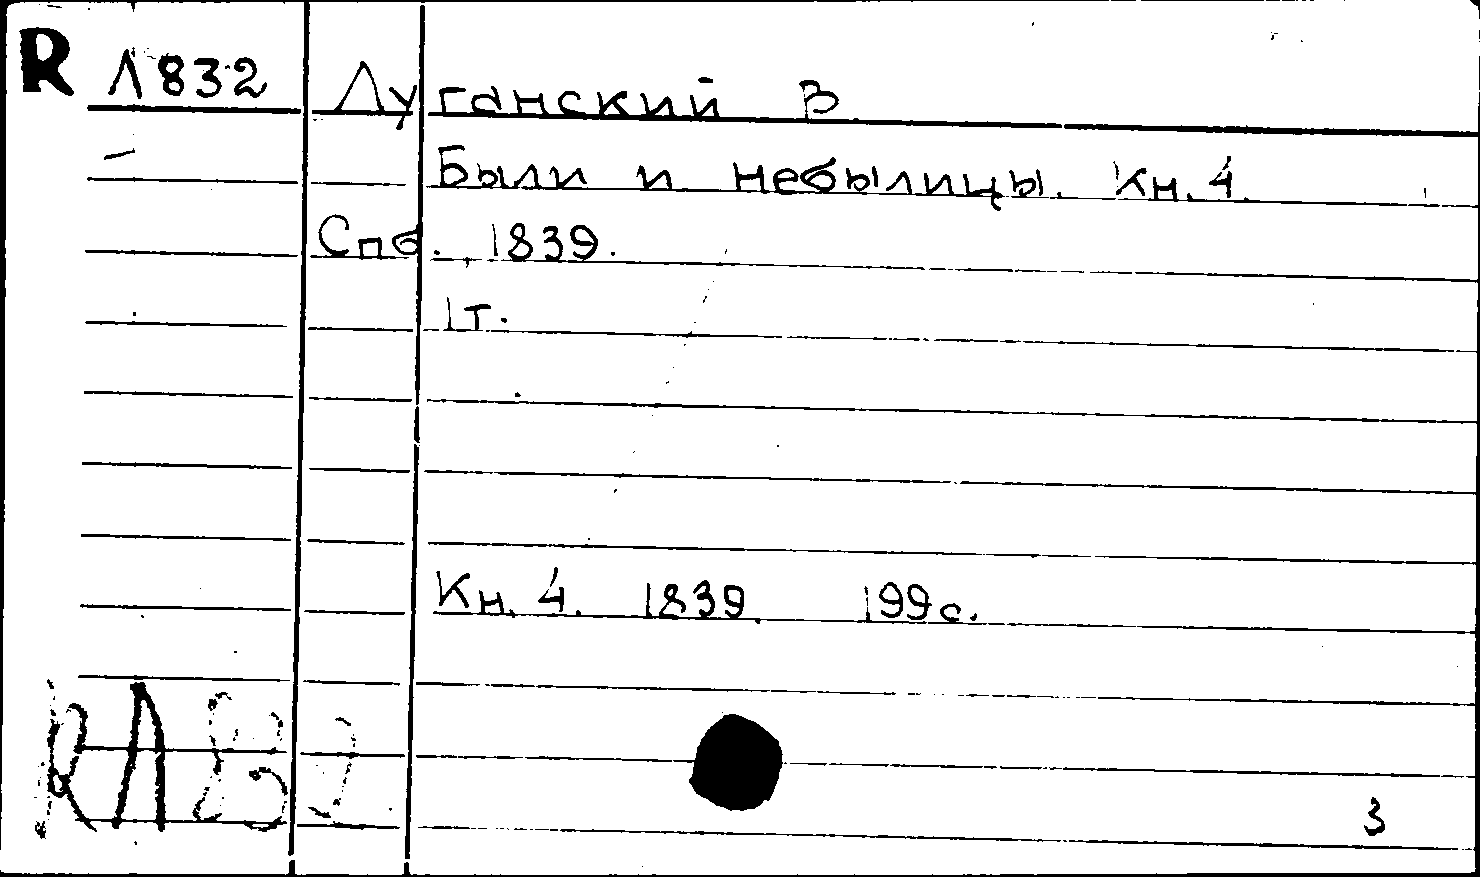 R Л832 Луганский В
Были и небылицы. Кн. 4.
Спб., 1839.
1т.
Кн. 4. 1839. 199с.
RЛ832
3